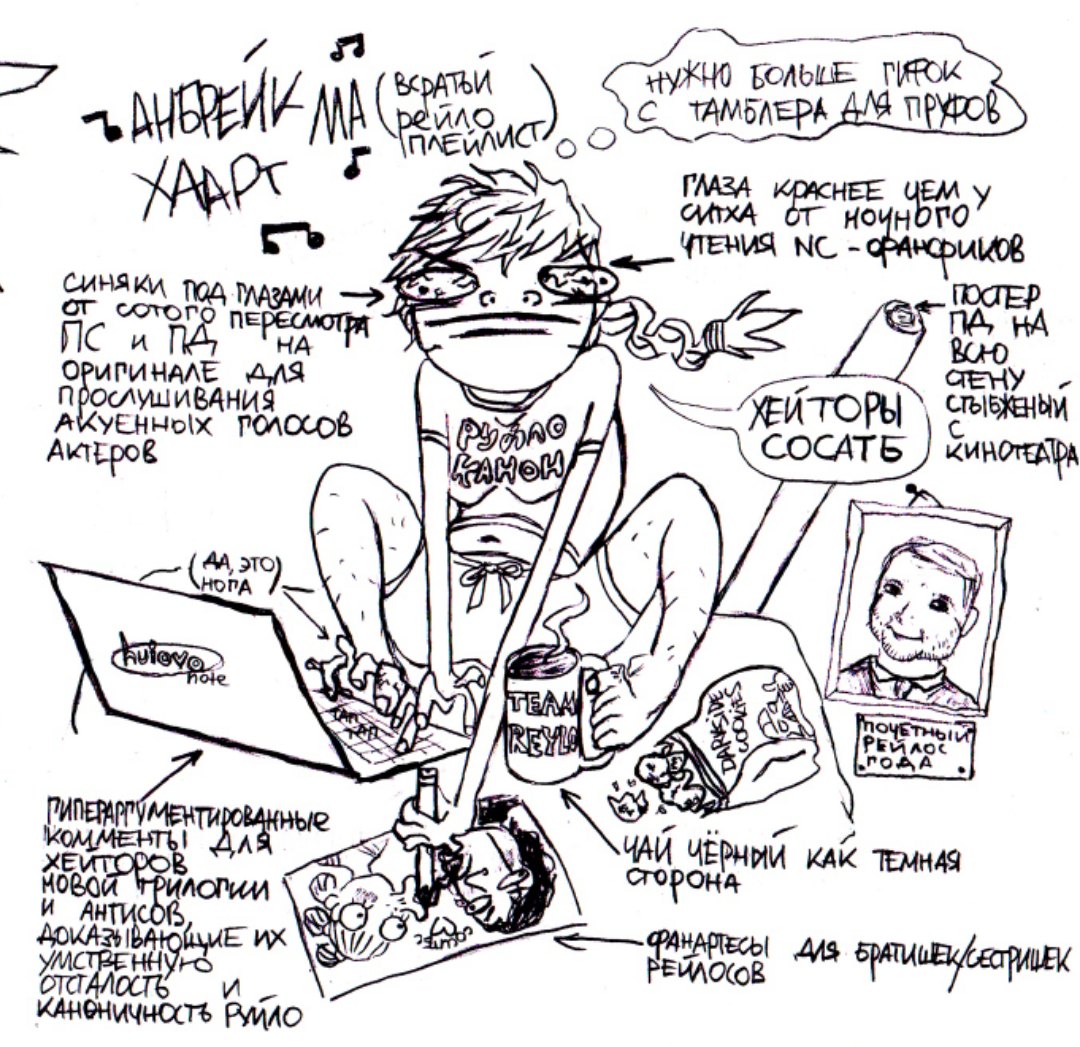 АНБРЕЙК МА
ХААРТ
(ВСРАТЫЙ
РЕЙЛО
ПЛЕЙЛИСТ)
НУЖНО БОЛЬШЕ ГИФОК
С ТАМБЛЕРА ДЛЯ ПРУФОВ
ГЛАЗА КРАСНЕЕ ЧЕМ У
СИТХА ОТ НОЧНОГО
ЧТЕНИЯ NC-ФАНФИКОВ
СИНЯКИ ПОД ГЛАЗАМИ
ОТ СОТОГО ПЕРЕСМОТРА
ПС И ПД НА
ОРИГИНАЛЕ ДЛЯ
ПРОСЛУШИВАНИЯ
АХУЕННЫХ ГОЛОСОВ
АКТЕРОВ
ПОСТЕР
ПД НА
ВСЮ
СТЕНУ
СПЫЗЖЕНЫЙ
С
КИНОТЕАТРА
ХЕЙТОРЫ
СОСАТЬ
РУЙЛО
КАНОН
(ДА, ЭТО
НОГА)
huiovo
note
ТАП
ТАП
TEAM
REYLO
DARKSIDE
COOKIES
ПОЧЕТНЫЙ
РЕЙЛОС
ГОДА
ГИПЕРАРГУМЕНТИРОВАННЫЕ
КОММЕНТЫ ДЛЯ
ХЕЙТОРОВ
НОВОЙ ТРИЛОГИИ
И АНТИСОВ,
ДОКАЗЫВАЮЩИЕ ИХ
УМСТВЕННУЮ
ОТСТАЛОСТЬ И
КАНОНИЧНОСТЬ РУЙЛО
ЧАЙ ЧЁРНЫЙ КАК ТЕМНАЯ
СТОРОНА
ФАНАРТЕСЫ ДЛЯ БРАТИШЕК/СЕСТРИШЕК
РЕЙЛОСОВ